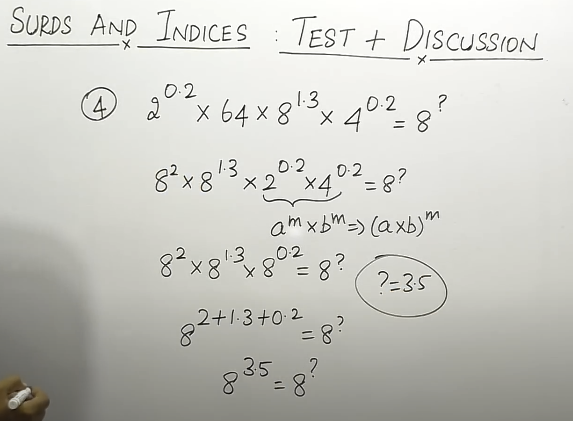 SURDS AND INDICES : TEST + DISCUSSION
④ 2^0.2 × 64 × 8^1.3 × 4^0.2 = 8^?
8^2 × 8^1.3 × 2^0.2 × 4^0.2 = 8^?
a^m × b^m => (a×b)^m
8^2 × 8^1.3 × 8^0.2 = 8^?
?=3.5
8^2+1.3+0.2 = 8^?
8^3.5 = 8^?